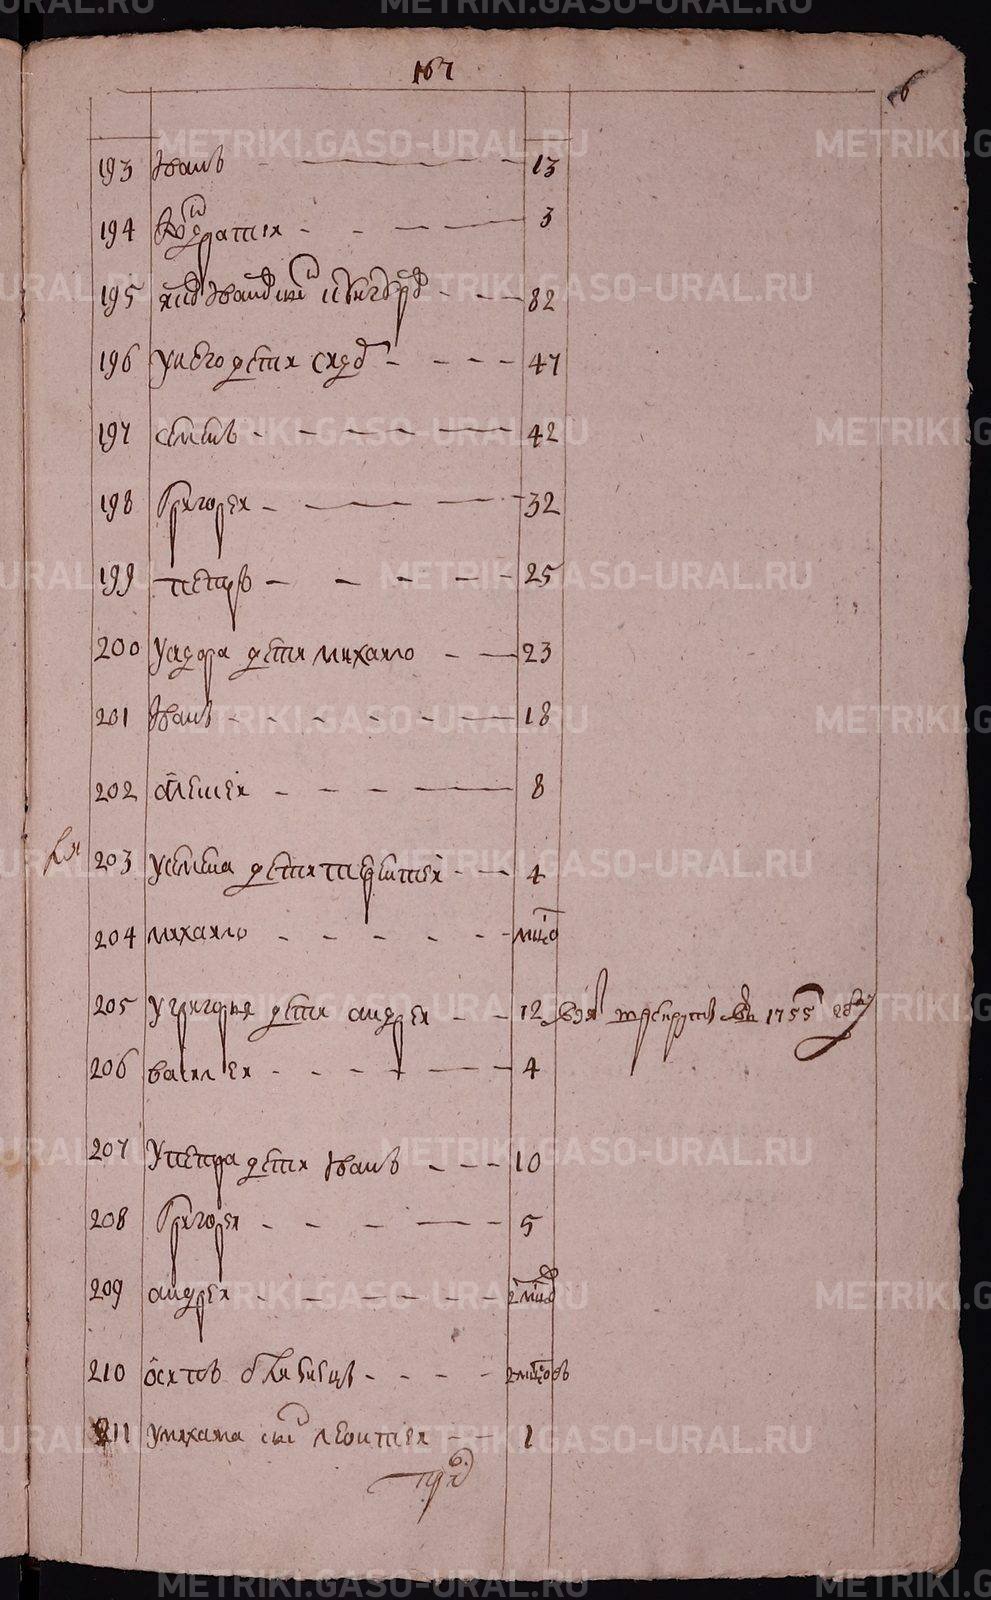 167
6
193 Иванъ 13
194 Кондратеи 3
195 Ивановъ снъ 82
196 У него дети Сидоръ 47
197 Семенъ 42
198 Григореи 32
199 Петръ 25
200 У Сидора дети Михаило 23
201 Иванъ 18
202 Алексеи 8
203 У Семена дети Терентеи 4
204 Михаило
205 У Григорья дети Андреи 12 взят в рекруты в 1755 году
206 Василеи 4
207 У Петра дети Иванъ 10
208 Григореи 5
209 Андреи
210 Осипъ близнецы
211 У Михаила снъ Леонтеи 1
METRIKI.GASO-URAL.RU